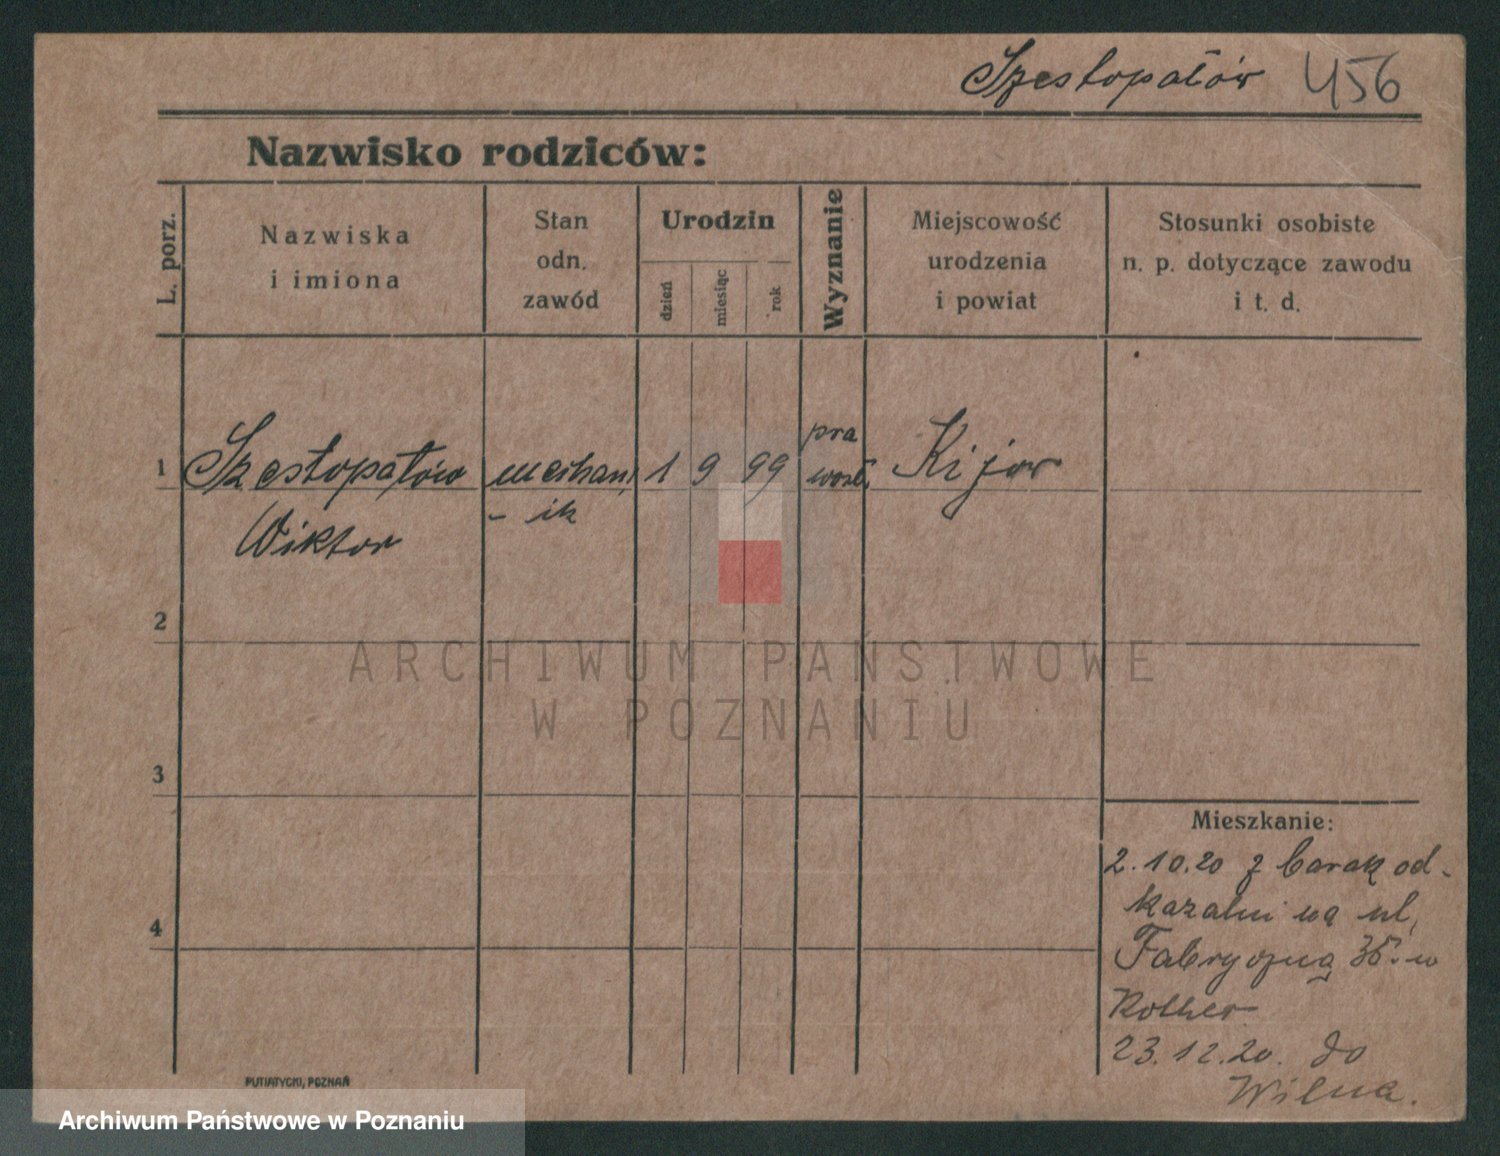 Szestopałów 456
Nazwisko rodziców:
L. porz.
Nazwiska
i imiona
Stan
odn.
zawód
Urodzin
dzień
miesiąc
rok
Wyznanie
Miejscowość
urodzenia
i powiat
Stosunki osobiste
n. p. dotyczące zawodu
i t. d.
pra
1 Szestopałów mechan 1 9 99 wosł. Kijow
Wiktor - ik
2
ARCHIWUM PAŃSTWOWE
W POZNANIU
3
Mieszkanie:
2.10.20 z barak od-
kazalni na ul.
4
Fabryczną 35. w
Rother
23.12.20. do
Wilna.
PUTIATYCKI, POZNAŃ
Archiwum Państwowe w Poznaniu